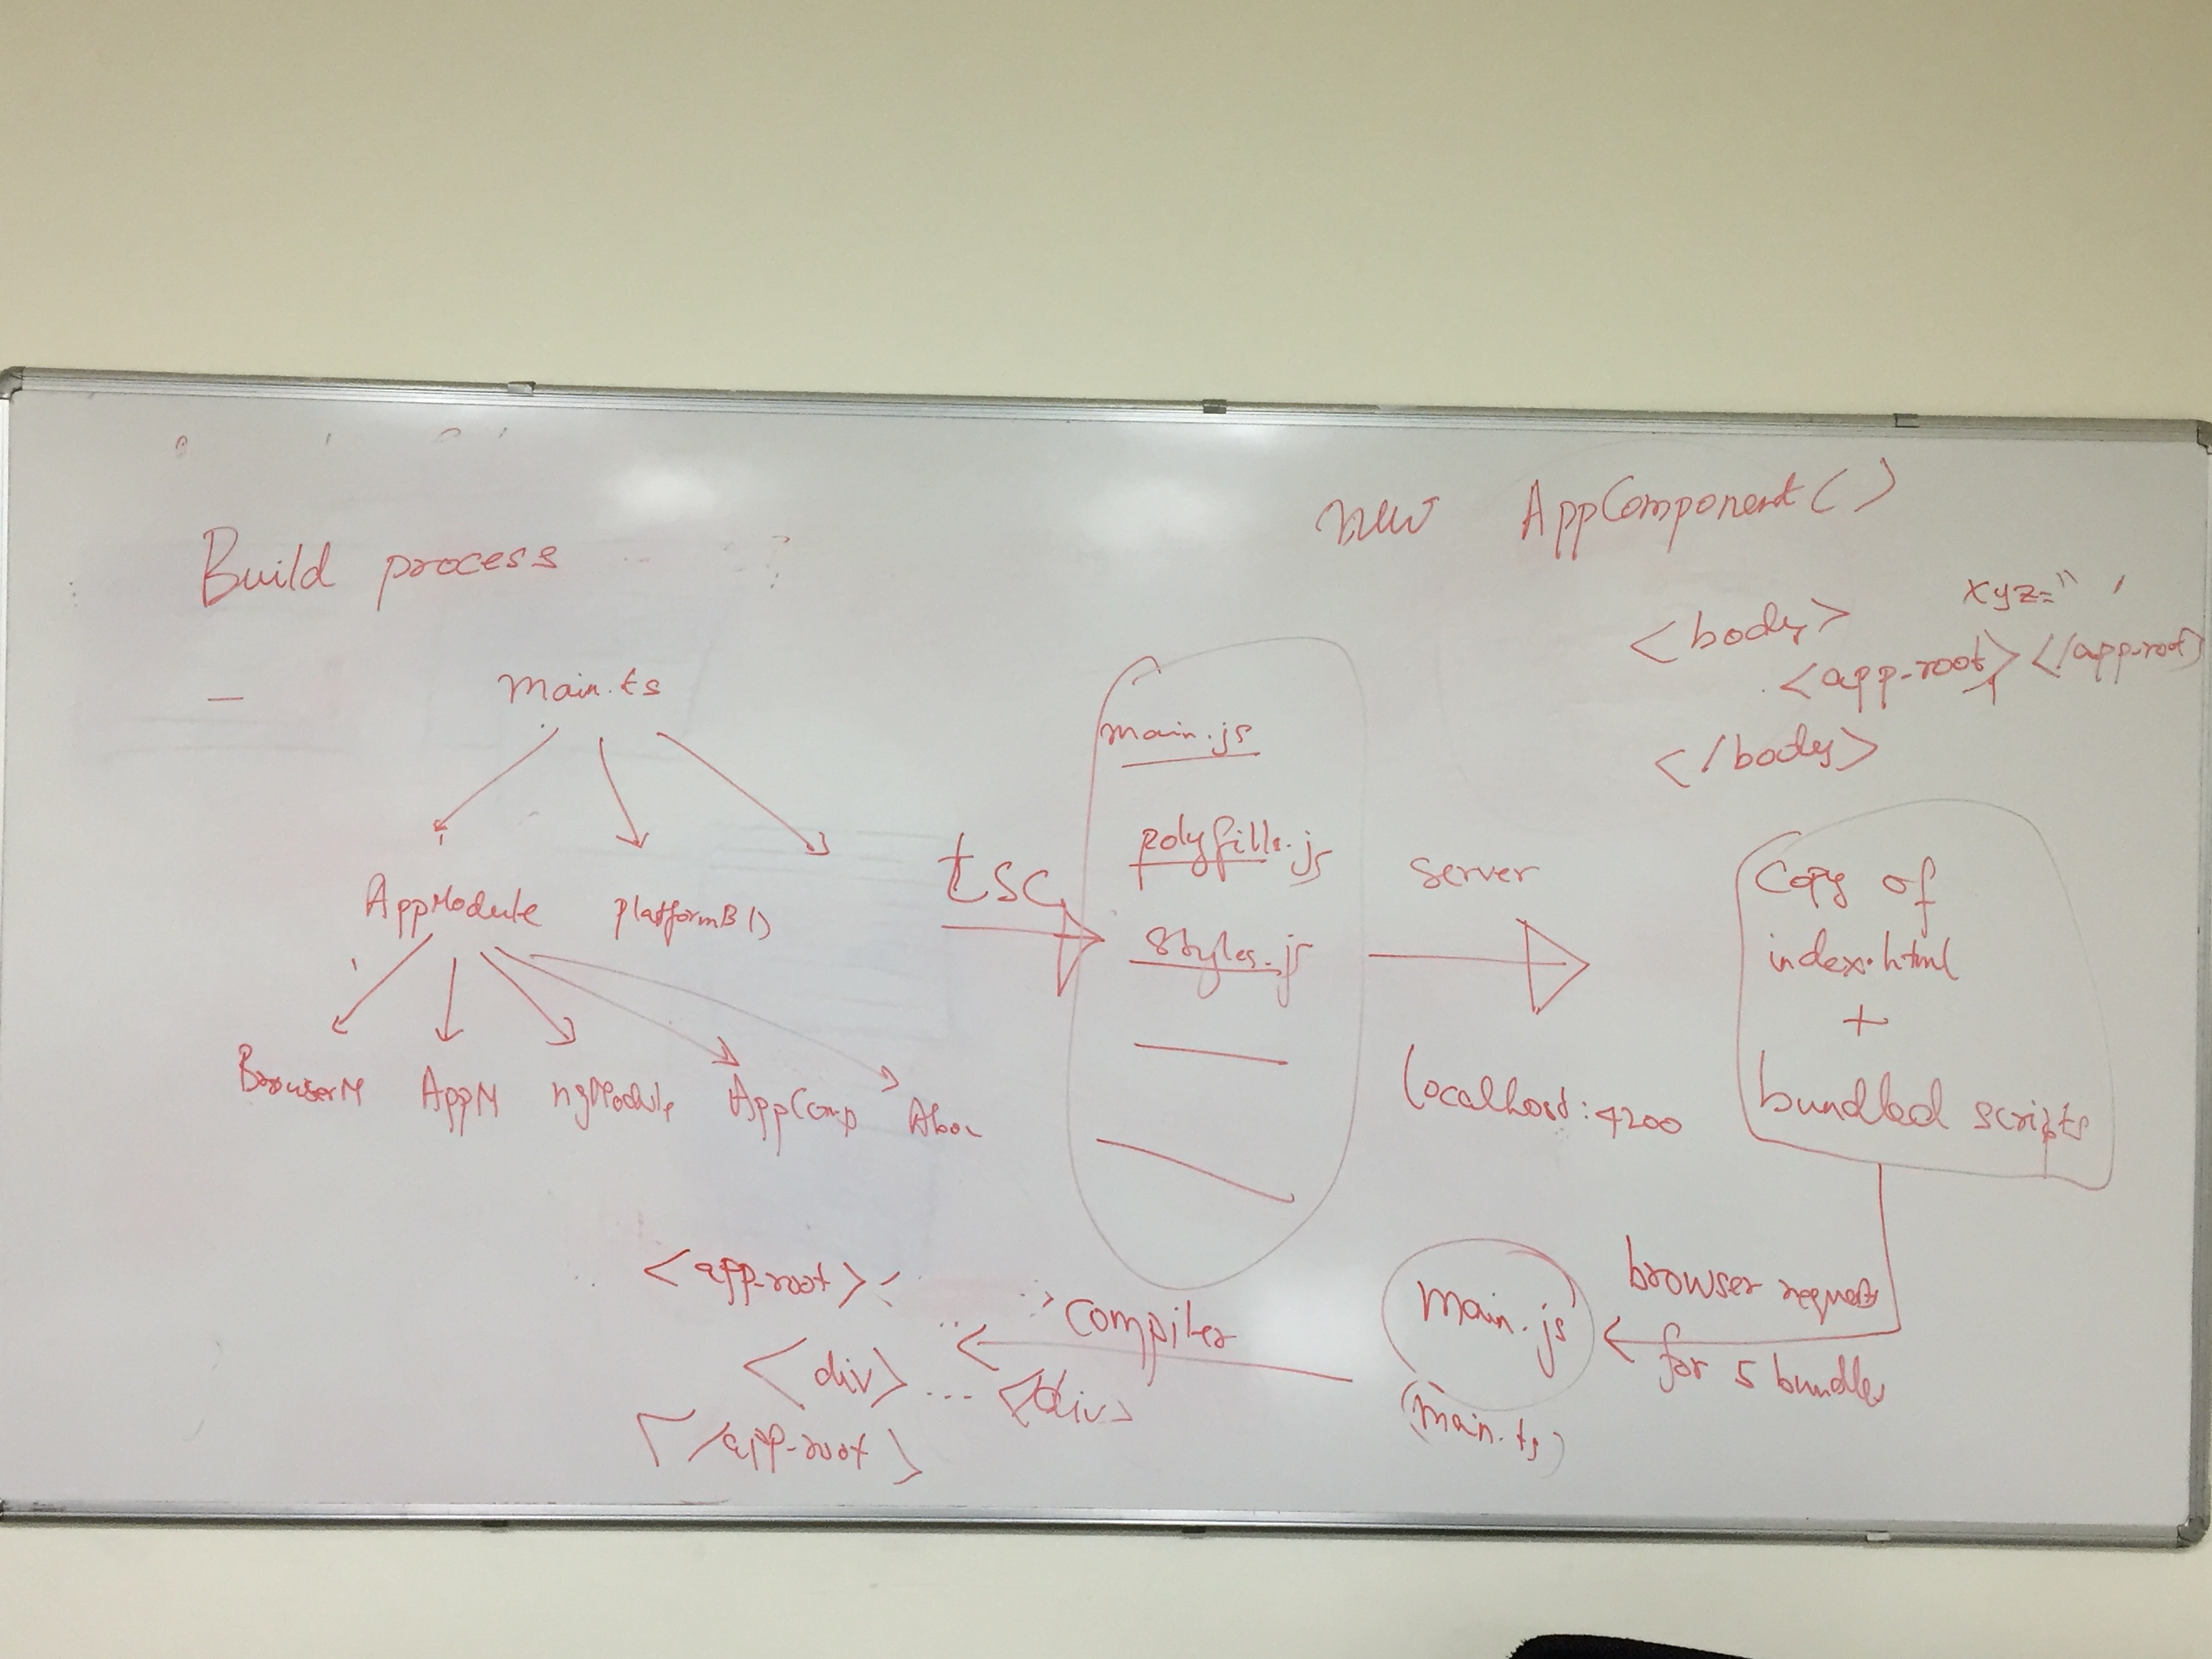 Build process
new AppComponent()
xyz=" '
<body>
<app-root> </app-root>
</body>
main.ts
AppModule platformB()
BrowserM AppM ngModule AppComp Abou
tsc
main.js
polyfills.js
styles.js
server
localhost:4200
Copy of
index.html
+
bundled scripts
browser request
for 5 bundles
main.js
(main.ts)
compiler
<app-root>
<div> .... </div>
</app-root>